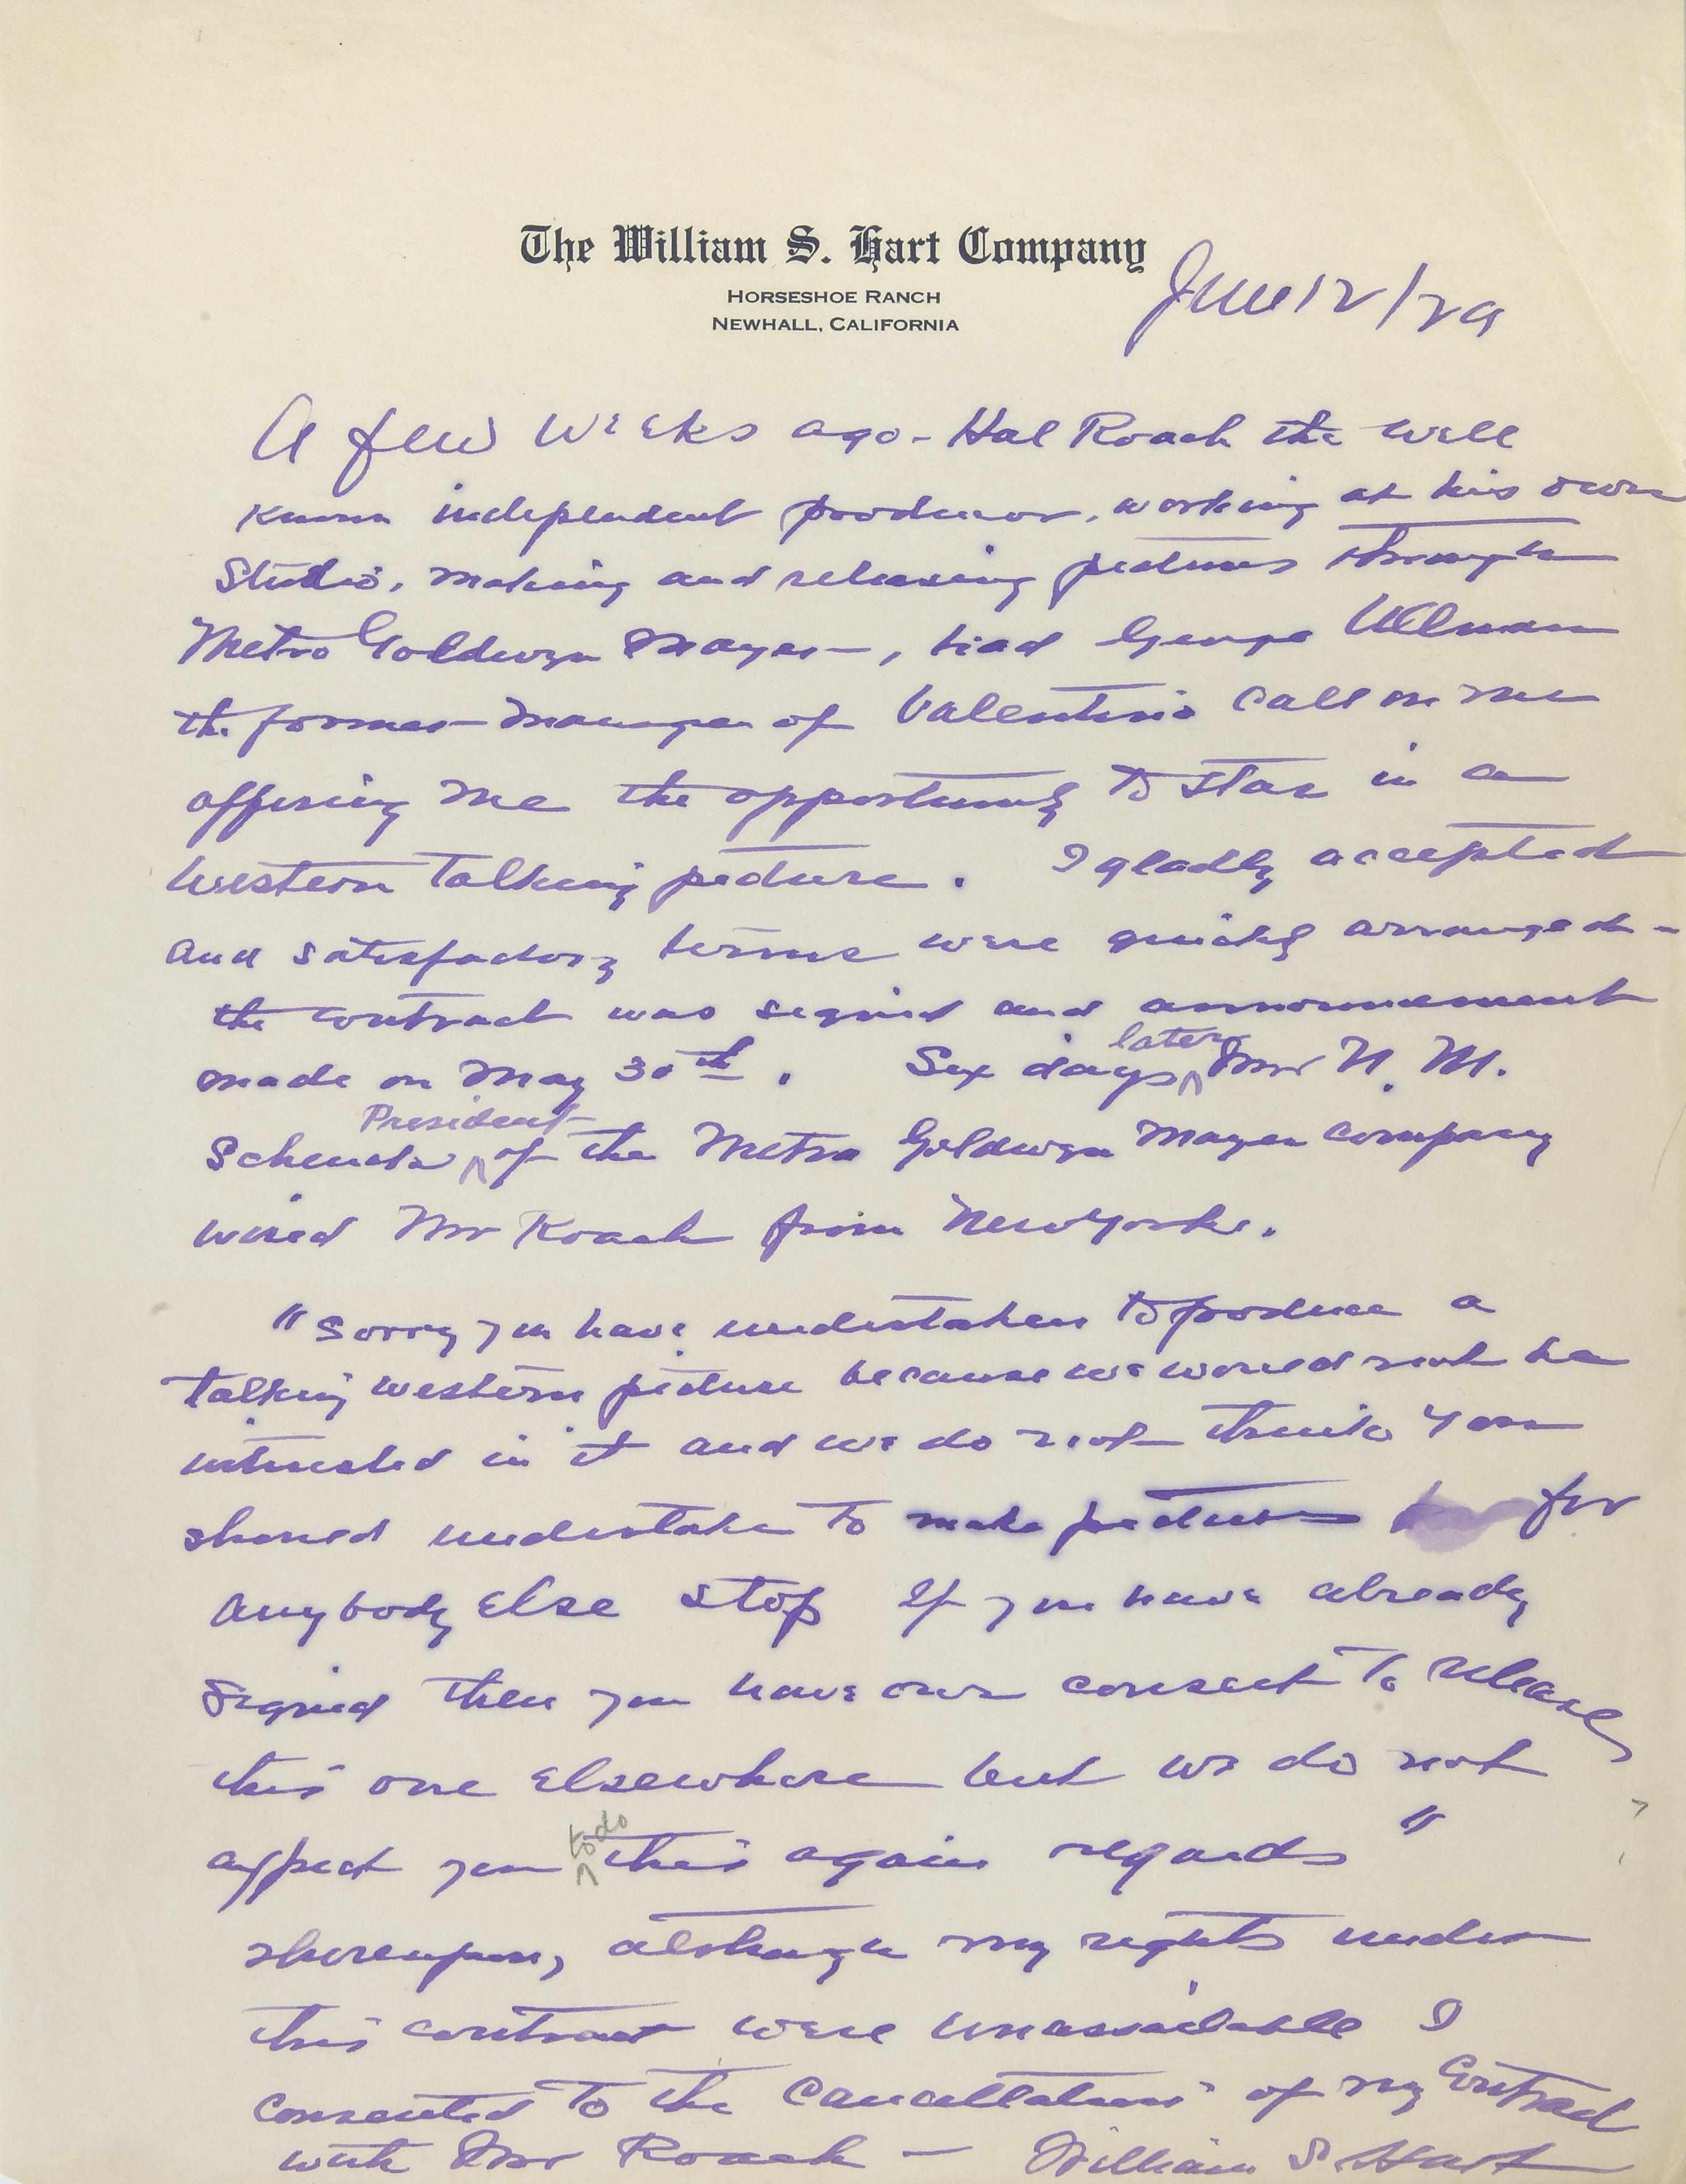 The William S. Hart Company
HORSESHOE RANCH
NEWHALL, CALIFORNIA
June 12/29
A few weeks ago - Hal Roach the well
known independent producer, working at his own
Studio, making and releasing pictures through
Metro Goldwyn Mayer, had George Ullman
the former manager of Valentino call on me
offering me the opportunity to star in a
Western Talking picture. I gladly accepted
and satisfactory terms were quickly arranged -
the contract was signed and announcement
made on May 30th. Six days later Mr N. M.
Schenck President of the Metro Goldwyn Mayer Company
wired Mr Roach from New York.
"Sorry you have undertaken to produce a
talking western picture because we would not be
interested in it and we do not think you
should undertake to make pictures for
anybody else stop If you have already
signed then you have our consent to release
this one elsewhere but we do not
expect you to do this again regards"
Thereupon, although my rights under
this contract were unassailable I
consented to the cancellation of my contract
with Mr Roach - William S Hart